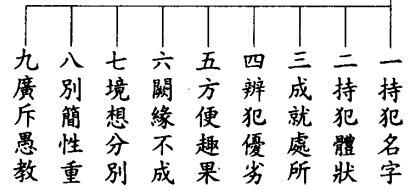 一持犯名字
二持犯體狀
三成就處所
四辨犯優劣
五方便趣果
六闕緣不成
七境想分別
八別簡性重
九廣斥愚教